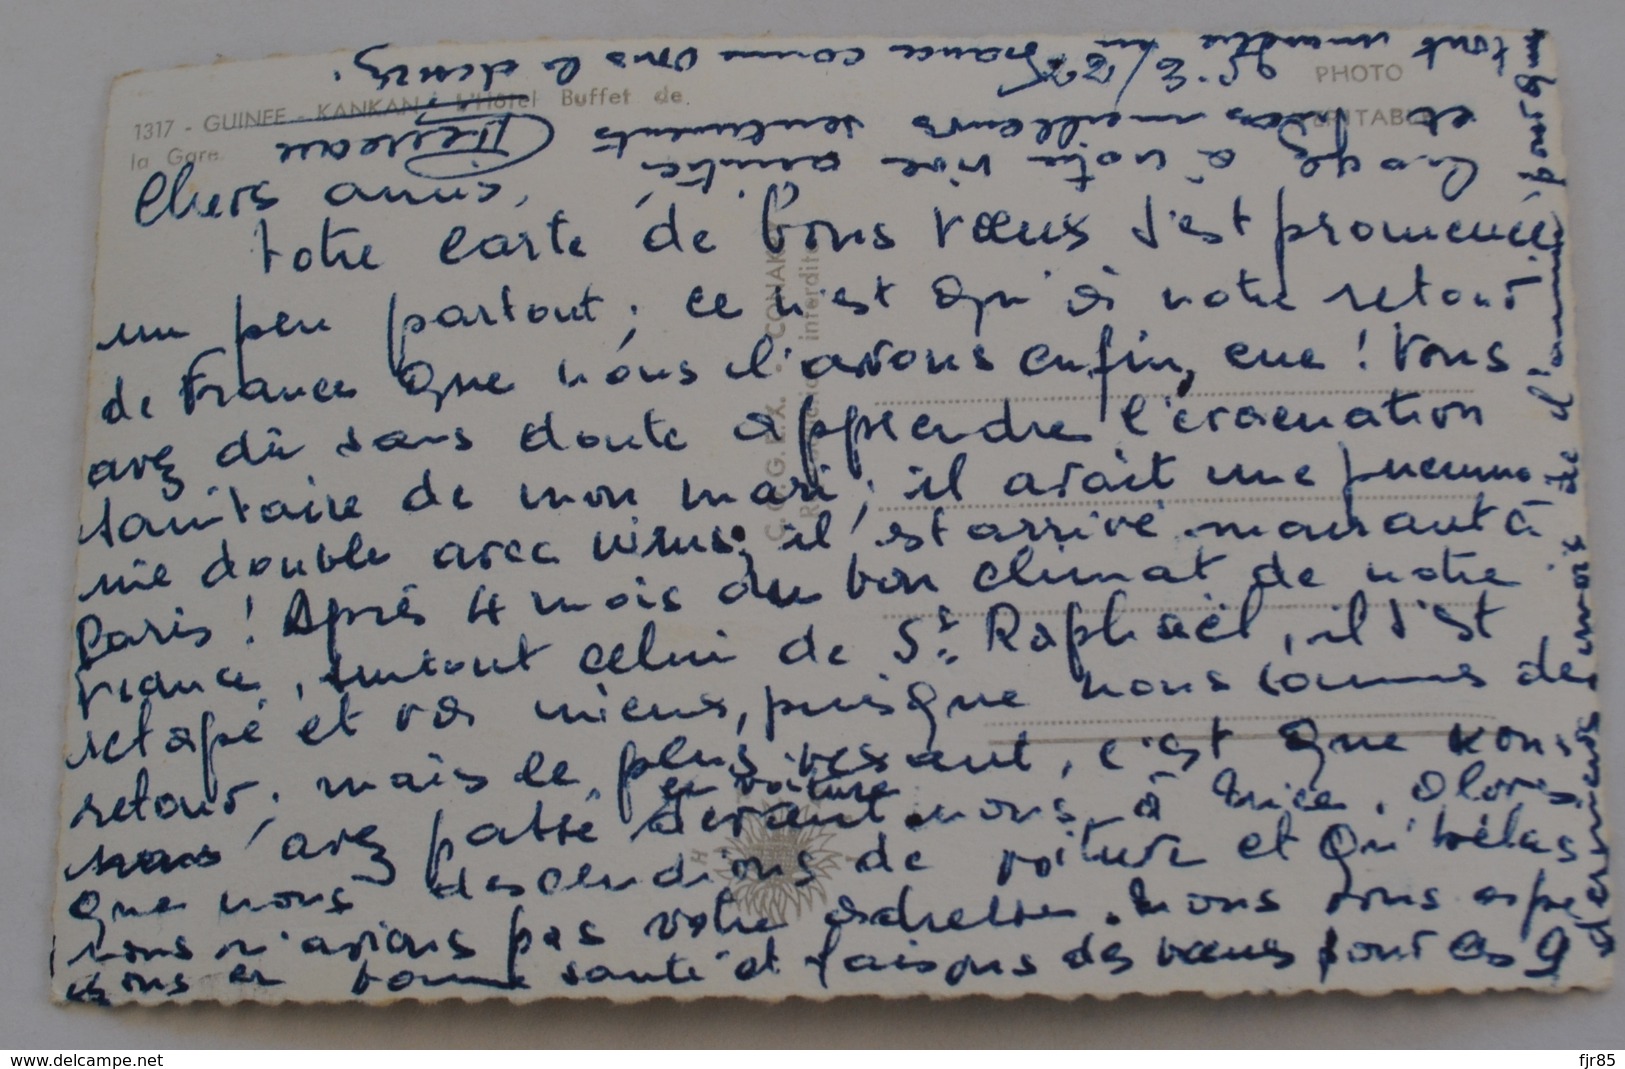 1317 - GUINEE - KANKAN - L'Hôtel Buffet de
la Gare.
PHOTO
VERITABLE
C.O.G.EX. - CONAKRY
interdite
Chers amis,
Votre carte de bons vœux s'est promenée
un peu partout. Ce n'est qu'à notre retour
de France que nous l'avons enfin, eue ! Vous
avez dû sans doute apprendre l'évacuation
sanitaire de mon mari ; il avait une pneumo
nie double avec virus ; il est arrivé mourant à
Paris ! Après 4 mois du bon climat de notre
France, surtout celui de St. Raphaël, il s'est
retapé et va mieux, puisque nous sommes de
retour ; mais le plus vexant, c'est que vous
avez passé en voiture devant nous à Nice, alors
que nous descendions de voiture et qu'hélas
nous n'avions pas votre adresse. Nous vous espé
rons en bonne santé et faisons des vœux pour ces 9
derniers mois de l'année pour q
en tout
France comme vous le désirez.
Croyez à notre vive amitié
et meilleurs sentiments
www.delcampe.net
fjr85